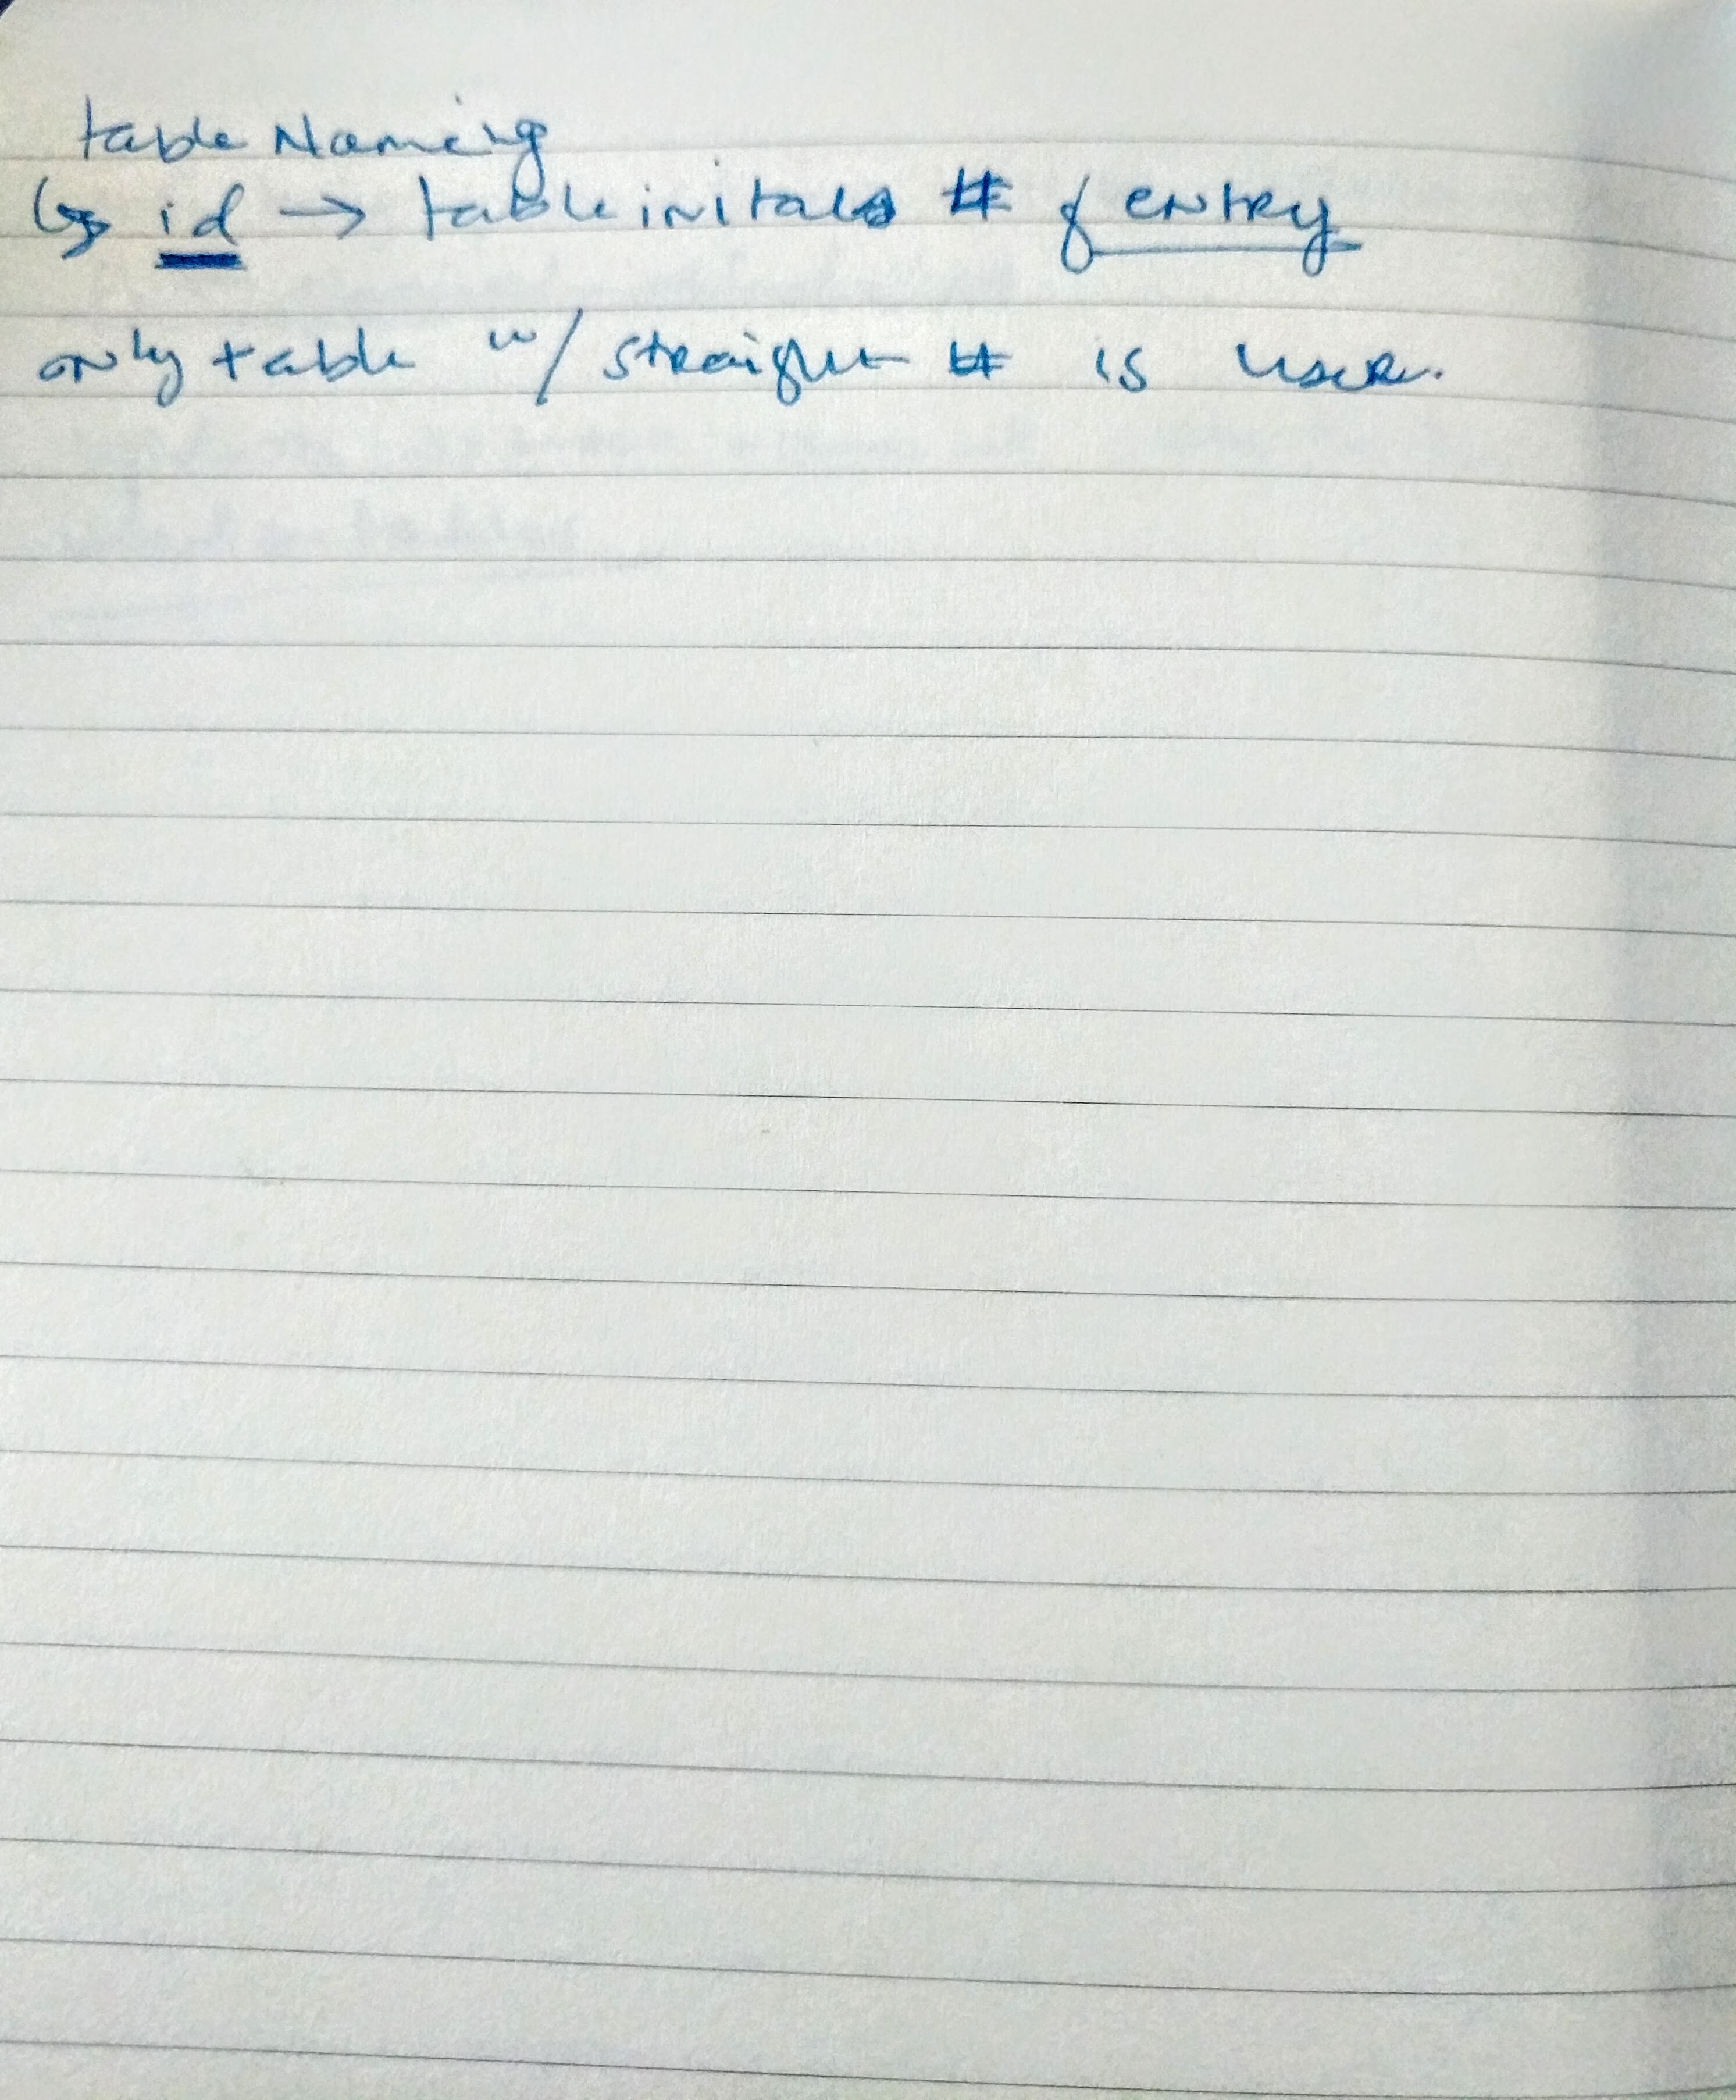 table Naming
↳ id → table initals # of entry
only table w/ straight # is user.